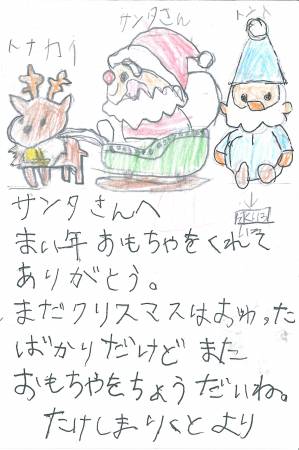 トナカイ
サンタさん
サンタさんへ
まい年おもちゃをくれて
ありがとう。
まだクリスマスはおわった
ばかりだけど また
おもちゃをちょうだいね。
たけしまりくとより